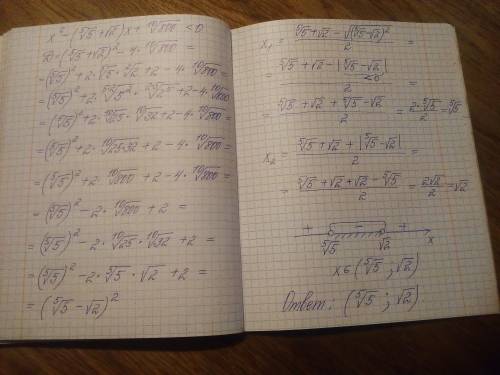 x² − (⁵√5 + √2)x + ¹⁰√800 < 0
D = (⁵√5 + √2)² − 4 · ¹⁰√800 =
= (⁵√5)² + 2 · ⁵√5 · √2 + 2 − 4 · ¹⁰√800 =
= (⁵√5)² + 2 · ¹⁰√5² · ¹⁰√2⁵ + 2 − 4 · ¹⁰√800
= (⁵√5)² + 2 · ¹⁰√25 · ¹⁰√32 + 2 − 4 · ¹⁰√800 =
= (⁵√5)² + 2 · ¹⁰√25·32 + 2 − 4 · ¹⁰√800 =
= (⁵√5)² + 2 · ¹⁰√800 + 2 − 4 · ¹⁰√800 =
= (⁵√5)² − 2 · ¹⁰√800 + 2 =
= (⁵√5)² − 2 · ¹⁰√25 · ¹⁰√32 + 2 =
= (⁵√5)² − 2 · ⁵√5 · √2 + 2 =
= (⁵√5 − √2)²
x₁ = (⁵√5 + √2 − √(⁵√5 − √2)²) / 2 =
= (⁵√5 + √2 − |⁵√5 − √2|) / 2 =
<0
= (⁵√5 + √2 + ⁵√5 − √2) / 2 = 2·⁵√5 / 2 = ⁵√5
x₂ = (⁵√5 + √2 + |⁵√5 − √2|) / 2 =
= (⁵√5 + √2 + √2 − ⁵√5) / 2 = 2√2 / 2 = √2
+ − +
⁵√5 √2 x
x ∈ (⁵√5 ; √2)
Ответ: (⁵√5 ; √2).